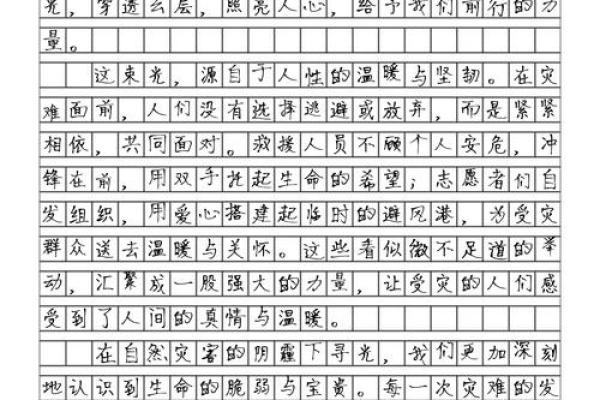 光，穿透云层，照亮人心，给予我们前行的力
量。
这束光，源自于人性的温暖与坚韧。在灾
难面前，人们没有选择逃避或放弃，而是紧紧
相依，共同面对。救援人员不顾个人安危，冲
锋在前，用双手托起生命的希望；志愿者们自
发组织，用爱心搭建起临时的避风港，为受灾
群众送去温暖与关怀。这些看似微不足道的举
动，汇聚成一股强大的力量，让受灾的人们感
受到了人间的真情与温暖。
在自然灾害的阴霾下寻光，我们更加深刻
地认识到生命的脆弱与宝贵。每一次灾难的发